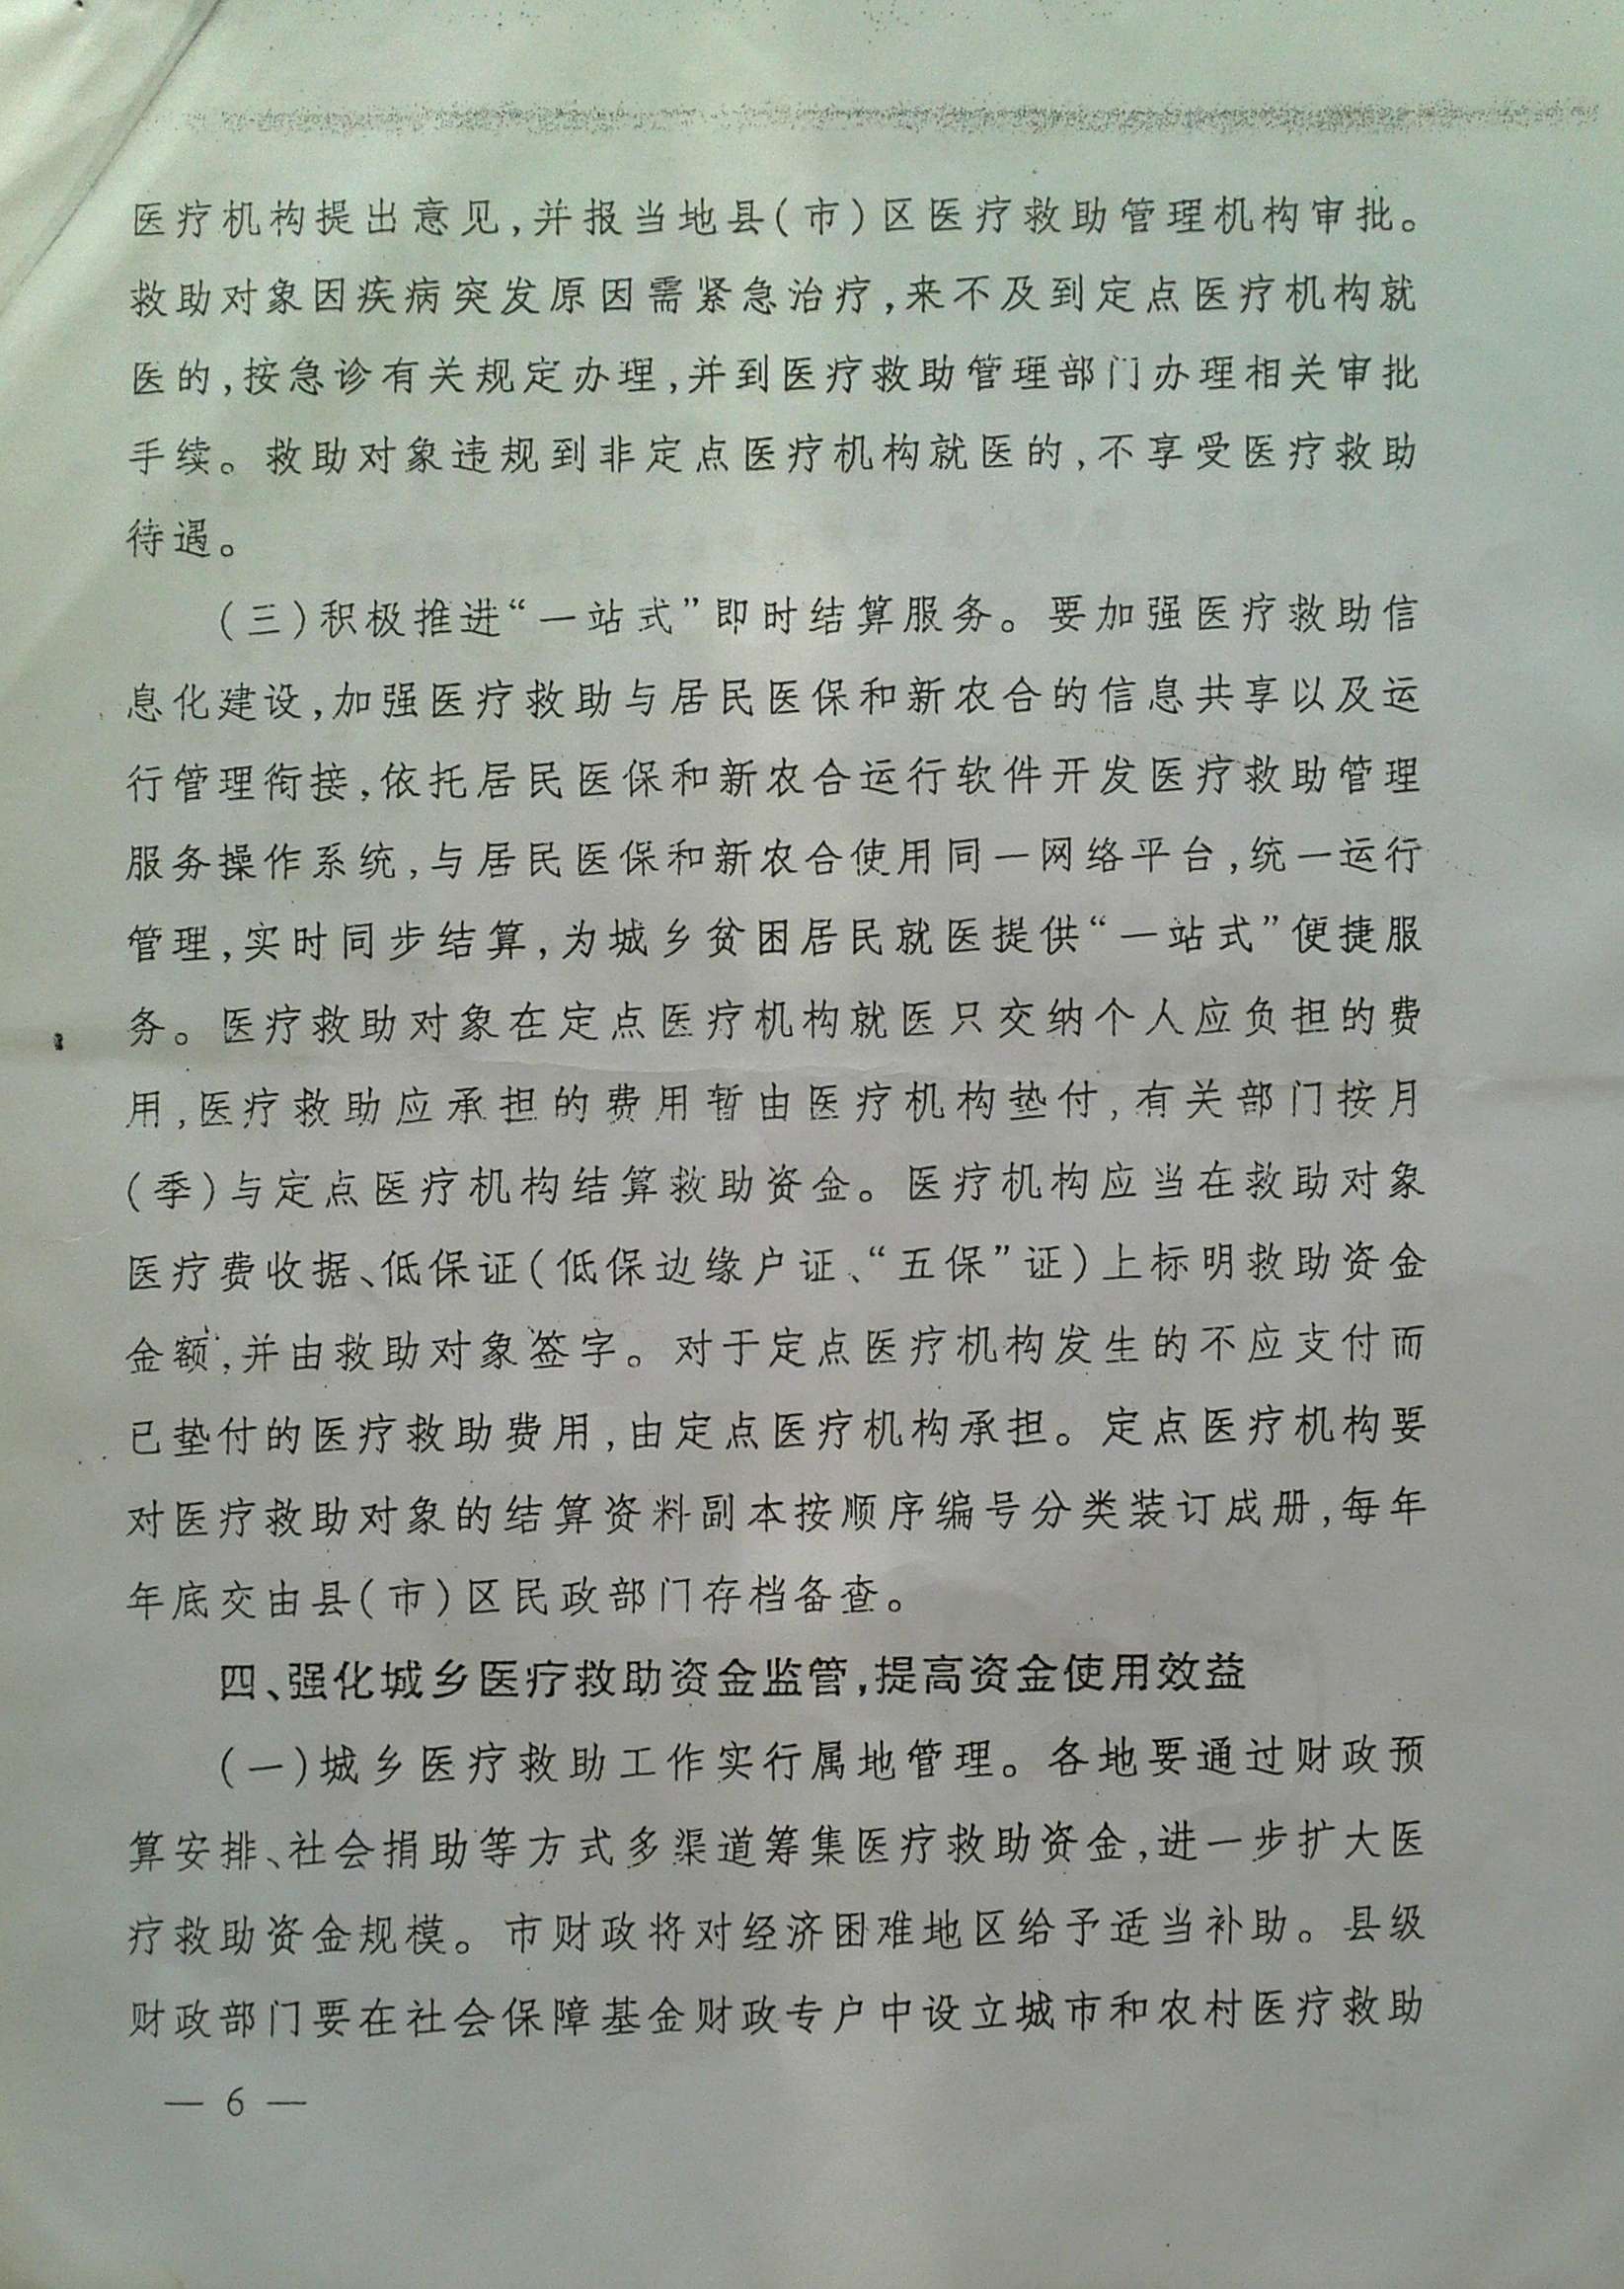 医疗机构提出意见,并报当地县(市)区医疗救助管理机构审批。
救助对象因疾病突发原因需紧急治疗,来不及到定点医疗机构就
医的,按急诊有关规定办理,并到医疗救助管理部门办理相关审批
手续。救助对象违规到非定点医疗机构就医的,不享受医疗救助
待遇。
(三)积极推进“一站式”即时结算服务。要加强医疗救助信
息化建设,加强医疗救助与居民医保和新农合的信息共享以及运
行管理衔接,依托居民医保和新农合运行软件开发医疗救助管理
服务操作系统,与居民医保和新农合使用同一网络平台,统一运行
管理,实时同步结算,为城乡贫困居民就医提供“一站式”便捷服
务。医疗救助对象在定点医疗机构就医只交纳个人应负担的费
用,医疗救助应承担的费用暂由医疗机构垫付,有关部门按月
(季)与定点医疗机构结算救助资金。医疗机构应当在救助对象
医疗费收据、低保证(低保边缘户证、“五保”证)上标明救助资金
金额,并由救助对象签字。对于定点医疗机构发生的不应支付而
已垫付的医疗救助费用,由定点医疗机构承担。定点医疗机构要
对医疗救助对象的结算资料副本按顺序编号分类装订成册,每年
年底交由县(市)区民政部门存档备查。
四、强化城乡医疗救助资金监管,提高资金使用效益
(一)城乡医疗救助工作实行属地管理。各地要通过财政预
算安排、社会捐助等方式多渠道筹集医疗救助资金,进一步扩大医
疗救助资金规模。市财政将对经济困难地区给予适当补助。县级
财政部门要在社会保障基金财政专户中设立城市和农村医疗救助
— 6 —